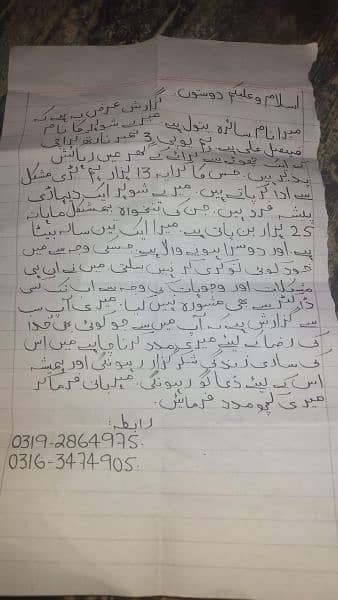 اسلام وعلیکم دوستوں۔
گزارش عرض یہ ہے کہ
میرا نام سائرہ بتول ہے میرے شوہر کا نام
علی ہے ہم یوپی 3 نمبر نارتھ کراچی
کی ایک چھوٹے سے کرائے کے گھر میں رہائش
پذیر ہیں۔ جس کا کرایہ 13 ہزار ہم بڑی مشکل
سے ادا کر پاتے ہیں۔ میرے شوہر ایک دیہاڑی
پیشہ فرد ہیں، جن کی تنخواہ بمشکل ماہانہ
25 ہزار بن پاتی ہے۔ میرا ایک تین سالہ بیٹا
ہے اور دوسرا ہونے والا ہے۔ جس کی وجہ سے میں
خود کوئی نوکری کر نہیں سکتی میں نے ان ہی
مشکلات اور وجوہات کی وجہ سے اب تک کسی
ڈاکٹر سے بھی مشورہ نہیں کیا۔ میری آپ سب
سے گزارش ہے کہ آپ میں سے جو کوئی بھی خدا
کی رضا کے لیئے میری مدد کرنا چاہے میں اس
کی ساری زندگی شکر گزار رہونگی اور ہمیشہ
اس کے لیئے دُعا گو رہونگی۔ مہربانی فرما کر
میری کچھ مدد فرمائیں۔
رابطہ:
0319-2864975.
0316-3474905.